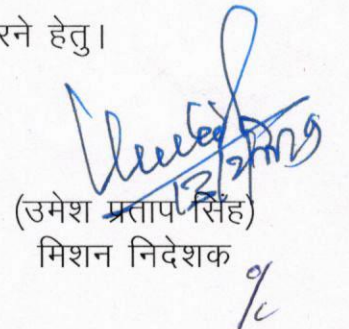 रने हेतु।
(उमेश प्रताप सिंह)
मिशन निदेशक